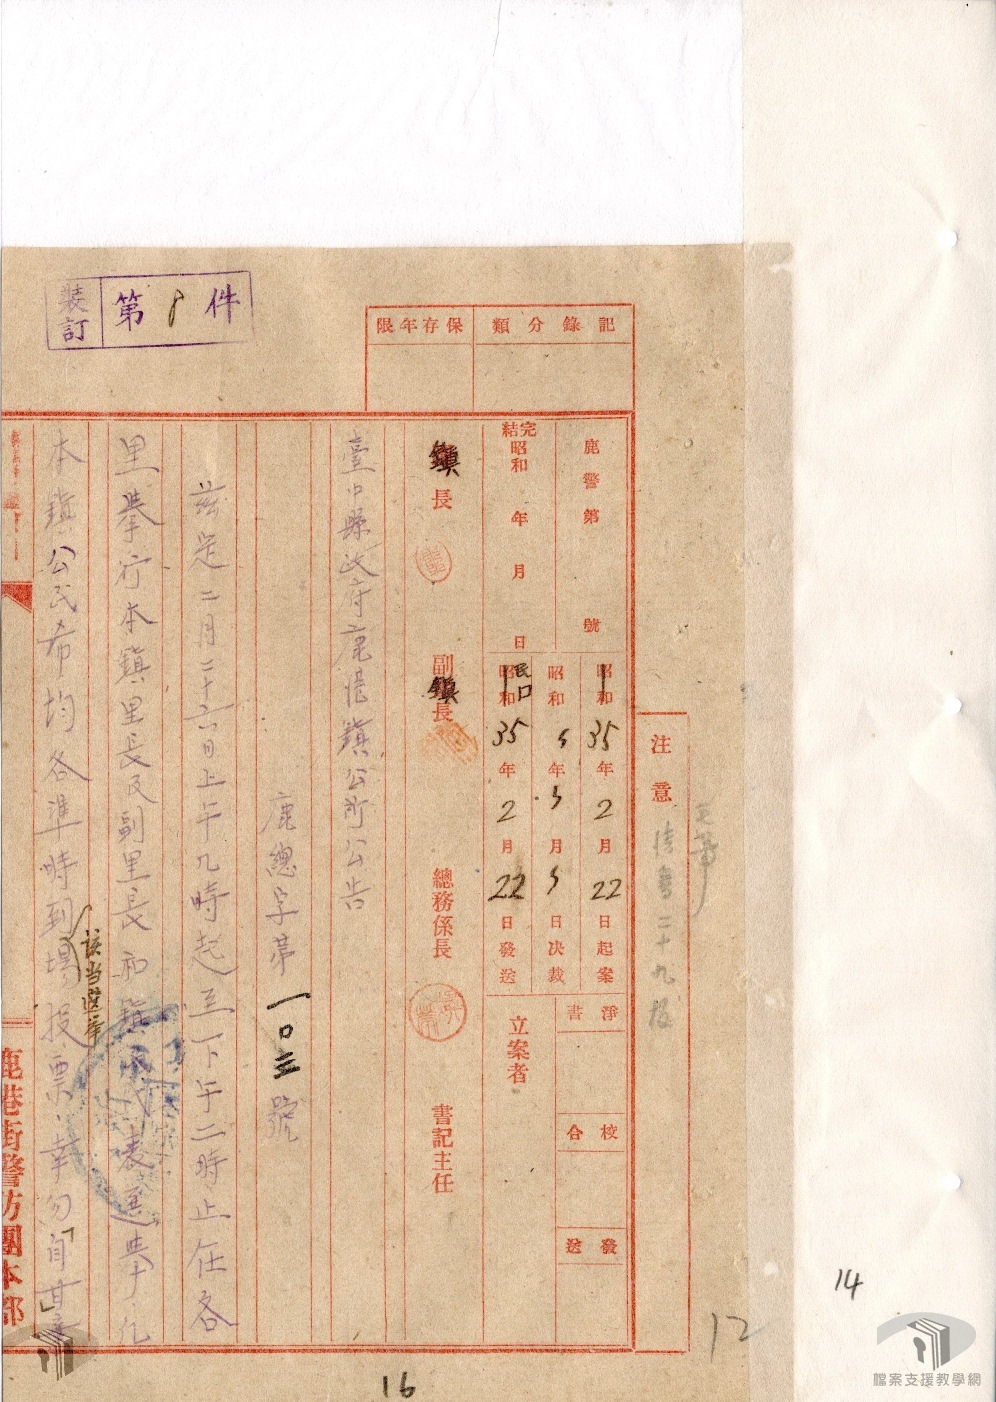 裝訂 第 8 件
記錄分類
保存年限
注意
鹿警第 號
完結 昭和 年 月 日
昭和 35年2月22日起案
昭和 年 月 日決裁
昭和 民 35年2月22日發送
淨書
校合
發送
立案者
鎮長
副鎮長
總務係長
書記主任
臺中縣政府鹿港鎮公所公告
鹿總字第一〇三號
茲定二月二十六日上午九時起至下午二時止在各
里擧行本鎮里長及副里長和鎮民代表選擧凡
該当選筆
本鎮公民希均各準時到場投票幸勿自其棄
鹿港街警防團本部
12
14
16
檔案支援教學網